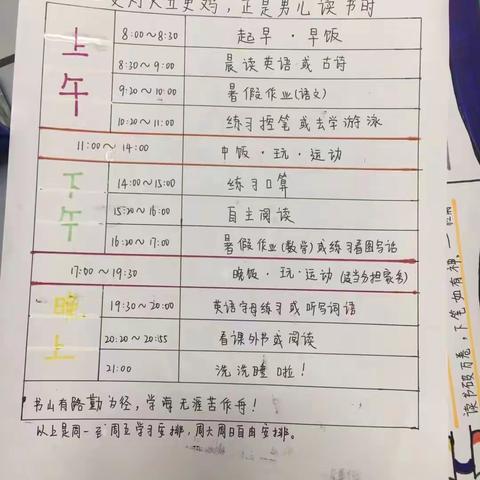 灯火五更鸡，正是男儿读书时
上午
8:00~8:30 起早·早饭
8:30~9:00 晨读英语或古诗
9:20~10:00 暑假作业(语文)
10:20~11:00 练习控笔或去学游泳
11:00~14:00 中饭·玩·运动
下午
14:00~15:00 练习口算
15:20~16:00 自主阅读
16:20~17:00 暑假作业(数学)或练习看图写话
17:00~19:30 晚饭·玩·运动(适当分担家务)
晚上
19:30~20:00 英语字母练习或听写词语
20:20~20:55 看课外书或阅读
21:00 洗洗睡啦!
书山有路勤为径，学海无涯苦作舟!
以上是周一至周五学习安排，周六周日自由安排。
读书破万卷，下笔如有神，一